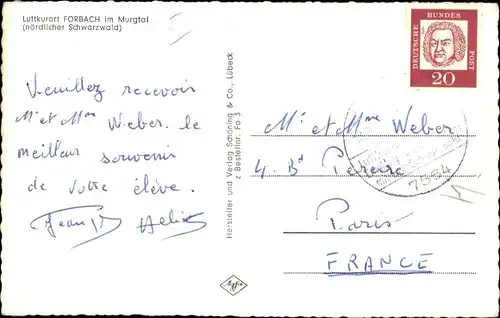 Luftkurort FORBACH im Murgtal
(nördlicher Schwarzwald)
Veuillez recevoir
Mr et Mme Weber. le
meilleur souvenir
de votre élève.
Hersteller und Verlag Schöning & Co., Lübeck
z Bestellnr. Fo 3
Agfa
DEUTSCHE BUNDESPOST
20
7564
Mr et Mme Weber
4. Bd Pereire
Paris
FRANCE